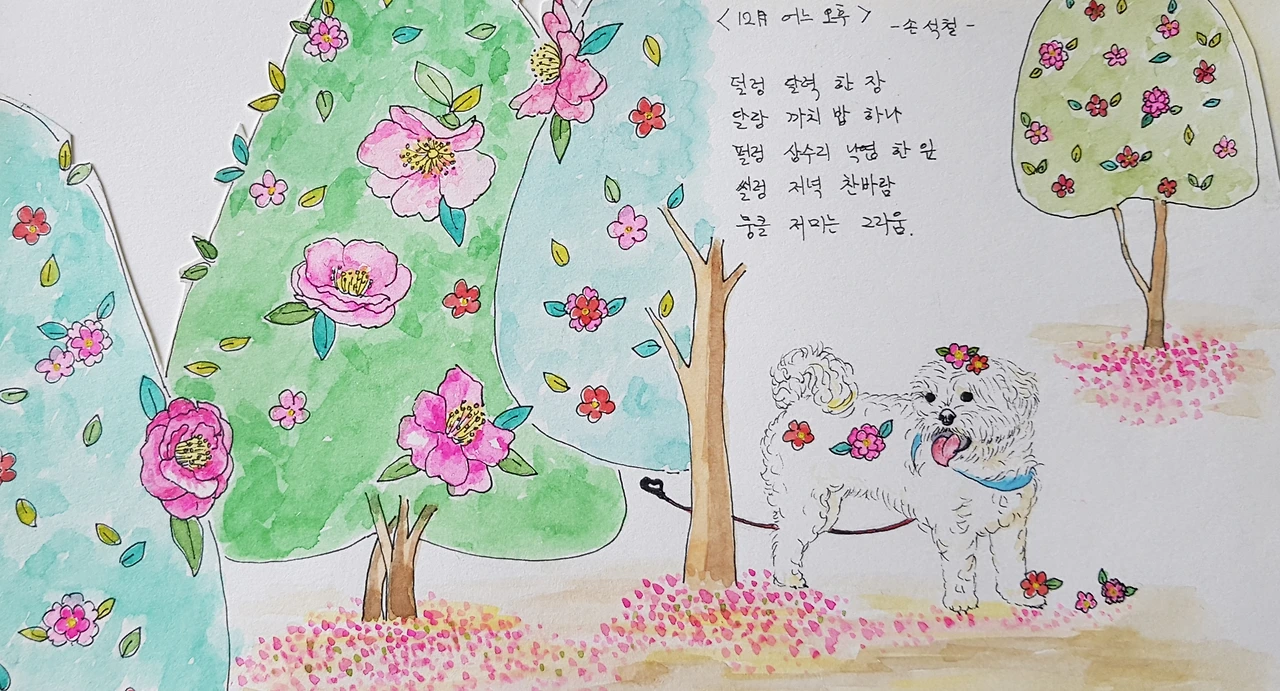 <12月 어느 오후>
-손석철-
덜렁 달력 한 장
달랑 까치 밥 하나
펄렁 상수리 낙엽 한 잎
썰렁 저녁 찬바람
뭉클 저미는 그리움.